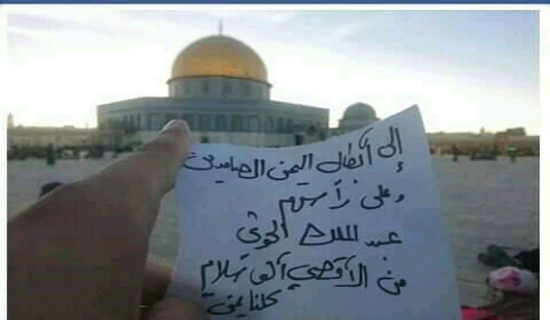 إلى أبطال اليمن الصامدين
وعلى رأسهم
عبد الملك الحوثي
من الأقصى ألف سلام
كلنا يمن